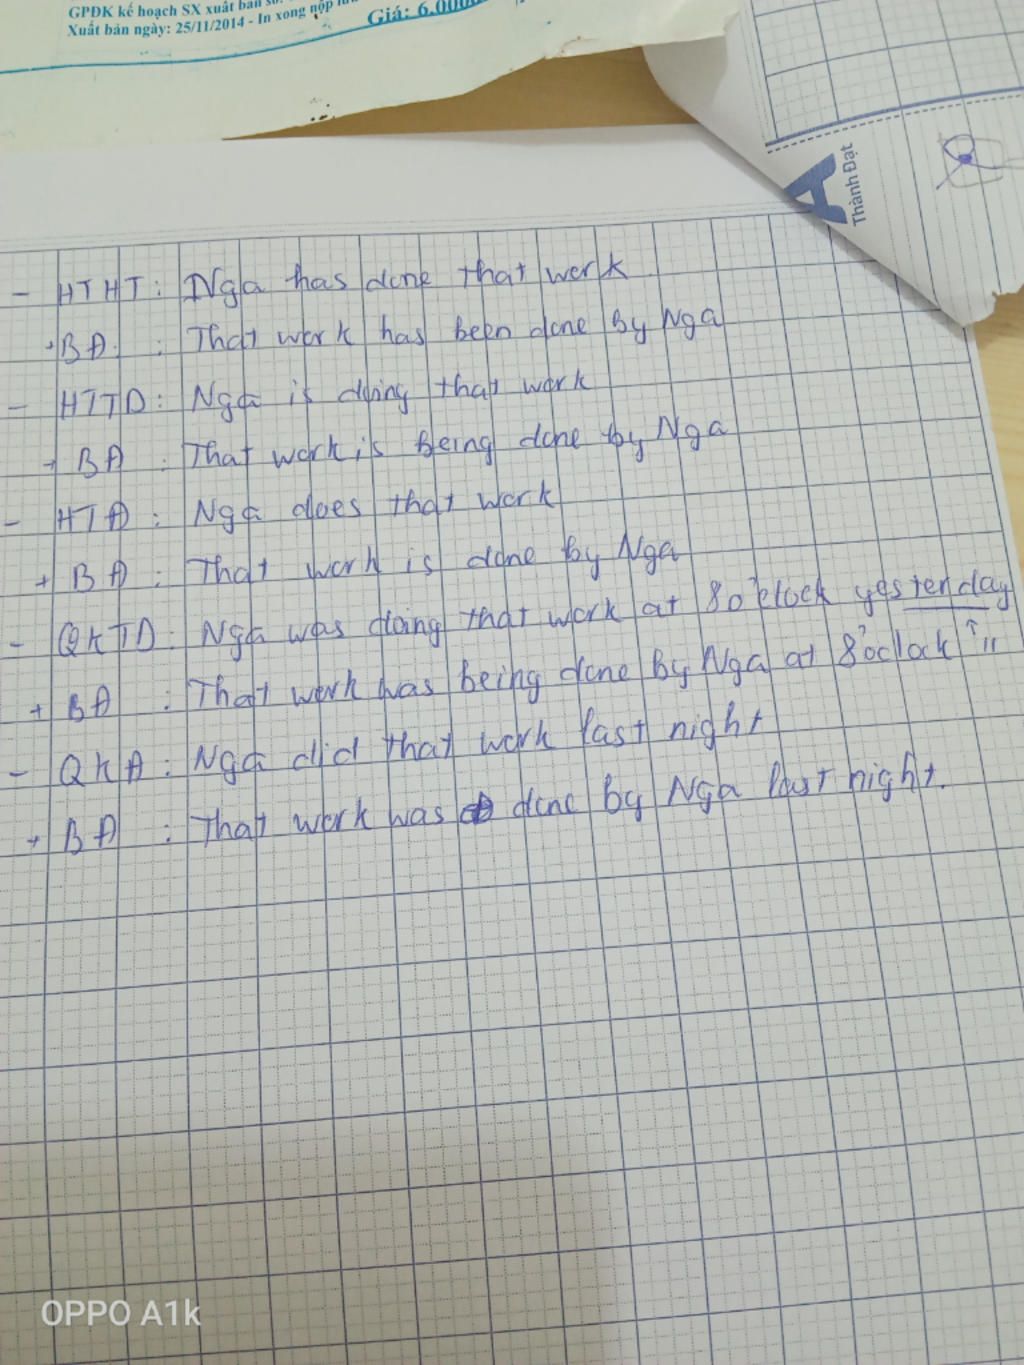 GPĐK kế hoạch SX xuất bản số:
Xuất bản ngày: 25/11/2014 - In xong nộp
Giá: 6.000
A
Thành Đạt
- HTHT: Nga has done that work
+ BĐ : That work has been done by Nga
- HTTD: Nga is doing that work
+ BĐ : That work is being done by Nga
- HTĐ : Nga does that work
+ BĐ : That work is done by Nga
- QKTD: Nga was doing that work at 8 o'clock yesterday
+ BĐ : That work was being done by Nga at 8 o'clock ↑ "
- QKĐ : Nga did that work last night
+ BĐ : That work was done by Nga last night.
OPPO A1k